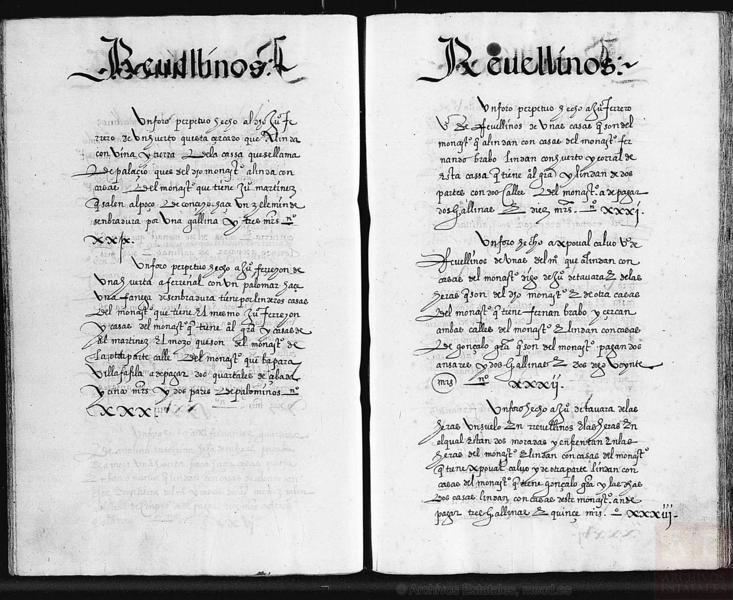 Revellinos.
Un foro perpetuo hecho al dho Juº fe
rrero de un huerto questa cercado que Alinda
con viña y tierra de la cassa que se llama
de palaçio ques del dho monastº alinda con
casas del monastº que tiene Juº martinez
que salen al poço de conçejo haçe un zelemin de
senbradura por una gallina y tres mrs nº
XXIX.
Un foro perpetuo hecho a Juº ferreron de
una huerta a ferrenal con un palomar haçe
una fanega de senbradura tiene por linderos casas
del monastº que tiene El mesmo Juº ferreron
y casas del monastº q tiene al grª y casas de
al martinez El mozo que son del monastº de
la otra parte calle del monastº que ba para
Villafafila a de pagar dos quartales de çebada
y çinco mrs y dos pares de palominos nº
XXX.
Revellinos.
Un foro perpetuo hecho a Juº ferrero
vº de Revellinos de unas casas q son del
monastº q alindan con casas del monastº fer
nando brabo lindan con huerto y corral de
esta cassa q tiene al grª y lindan de dos
partes con dos calles del monastº a de pagar
dos gallinas E diez mrs. nº XXXI.
Un foro hecho a xpoual calvo vº de
Revellinos de unas del mº que alindan con
casas del monastº digo de Juº de tavara E de las
heras q son del dho monastº E de otra casas
del monastº q tiene fernan brabo y cercan
ambas calles del monastº E lindan con casas
de gonçalo grª q son del monastº pagan dos
ansares y dos gallinas E dos digo veynte
mrs nº XXXII.
Un foro hecho a Juº de tavara de las
heras un suelo En rrevellinos a las heras En
el qual estan dos moradas y enfrentan En las
heras del monastº E lindan con casas del monastº
q tiene xpoual calvo y de otra parte lindan con
casas del monastº q tiene gonçalo grª y las dhas
dos casas lindan con casas deste monastº an de
pagar tres gallinas E quinçe mrs. nº XXXIII.
© Archivos Estatales, mecd.es